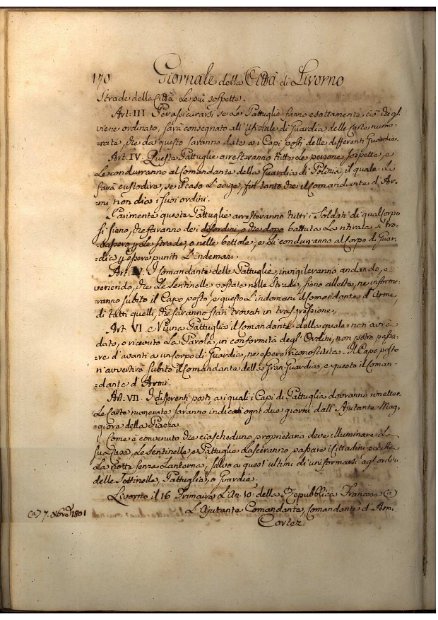 170 Giornale della Città di Livorno
Strade della Città le più sospette.
Art. III. Per assicurarsi se le Pattuglie fanno esattamente ciò che gli
viene ordinato, sarà consegnato all' Uffiziale di Guardia delle Carte nume
rate, che da questo saranno date ai Capi posti delle differenti Guardie.
Art. IV. Queste Pattuglie arresteranno tutte le persone sospette, e
le conduranno al Comandante della Guardia di Polizia, il quale le
farà custodire, se il caso lo esige, fin tanto che il Comandante d'Ar
mi non dia i suoi ordini.
Parimente queste Pattuglie arresteranno tutti i Soldati di qualunque
si siano, che faranno dei disordini, o che dopo battuta la ritirata si tro
vassero per le strade, o nelle bettole, e li conduranno al Corpo di Guar
dia per essere puniti l'indomani.
Art. V. I Comandanti delle Pattuglie, invigileranno andando, e
venendo, che le Sentinelle postate nelle Strade, siano allerta, ne informe
ranno subito il Capo posto, e questo l'indomani il Comandante d'Armi,
di tutti quelli, che saranno stati trovati in trasgressione.
Art. VI. Niuna Pattuglia il Comandante della quale non avrà
dato, o ricevuto la Parola, in conformità degl' Ordini, non potrà passa
re d'avanti a un Corpo di Guardia, ne essere riconosciuta. Il Capo posto
n'avvertirà subito il Comandante della Gran Guardia, e questo il Coman
dante d'Armi.
Art. VII. I differenti posti, ai quali i Capi di Pattuglia dovranno rimettere
le Carte numerate saranno indicati ogni due giorni dall' Ajutante Mag
giore della Piazza.
Come è convenuto che ciascheduno proprietario deve illuminare
le Sentinelle, e Pattuglie lasceranno passare i Cittadini
la Notte senza Lanterna, salvo a quest' ultimi di uniformarsi agl' ordini
delle Sentinelle, Pattuglie, o Guardie.
Livorno il 16 Frimaire l'An. 10 della Repubblica Francese (a)
(a) 7. 1801 L'Ajutante Comandante, Comandante d'Armi